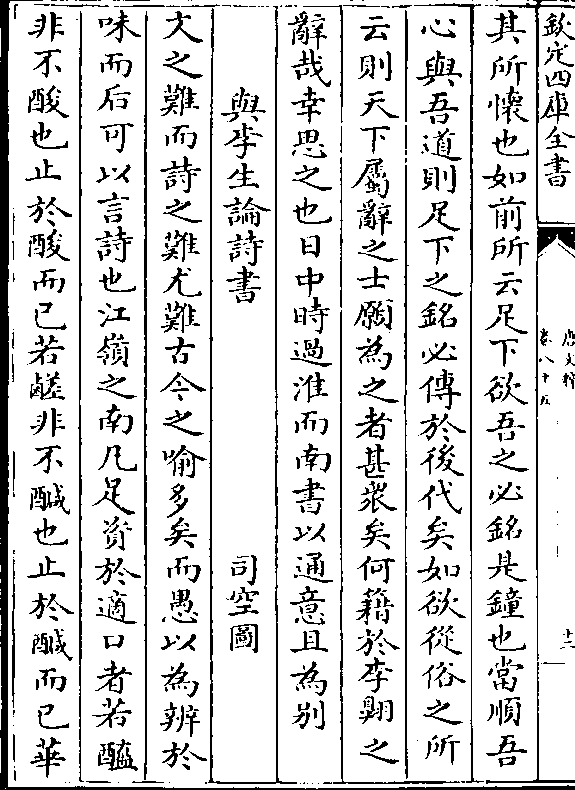 欽定四庫全書
唐文粹
卷八十五
十二
其所懷也如前所云足下欲吾之必銘是鐘也當順吾
心與吾道則足下之銘必傳於後代矣如欲從俗之所
云則天下屬辭之士願為之者甚衆矣何籍於李翺之
辭哉幸思之也日中時過淮而南書以通意且為別
與李生論詩書　司空圖
文之難而詩之難尤難古今之喻多矣而愚以為辨於
味而后可以言詩也江嶺之南凡足資於適口者若醯
非不酸也止於酸而已若鹺非不鹹也止於鹹而已華